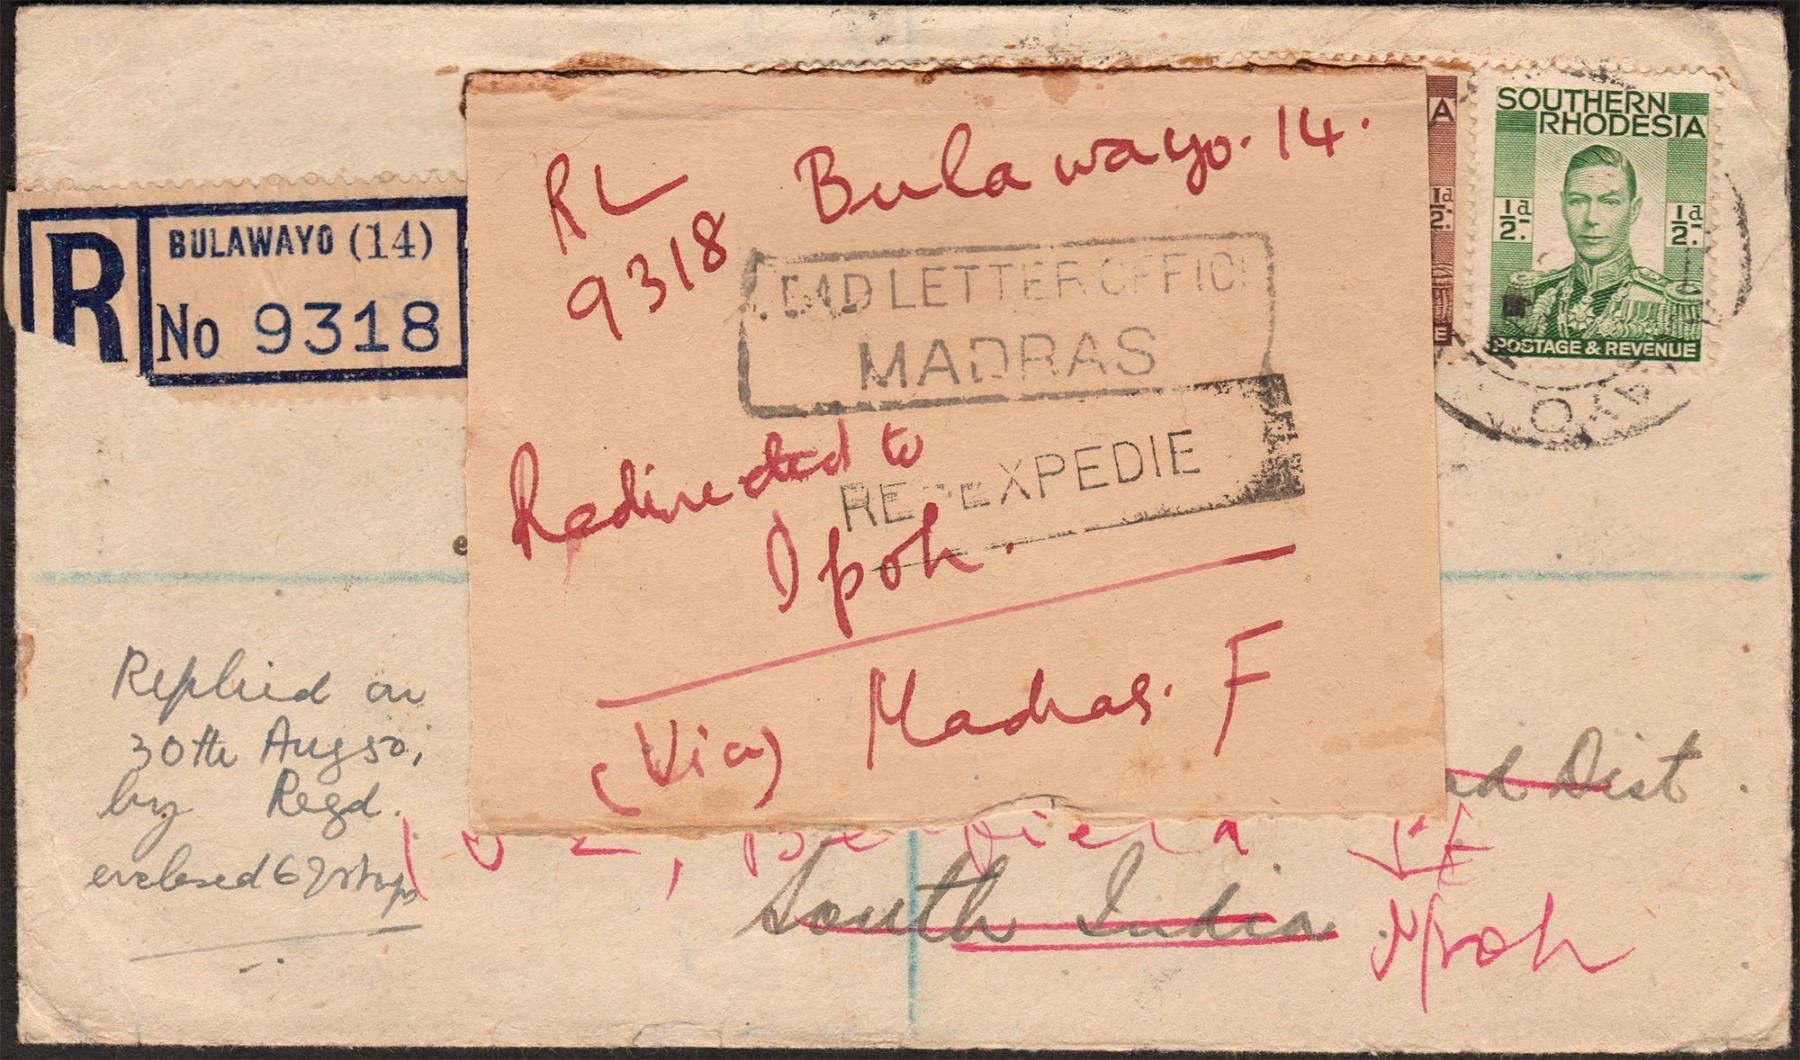 R BULAWAYO (14)
No 9318
RL
9318 Bulawayo. 14.
DEAD LETTER OFFICE
MADRAS
RE-EXPEDIE
Redirected to
Ipoh.
(Via) Madras. F
A
½d.
E
SOUTHERN
RHODESIA
½d. ½d.
POSTAGE & REVENUE
Replied on
30th Aug 50,
by Regd.
enclosed
Dist.
South India.
Ipoh